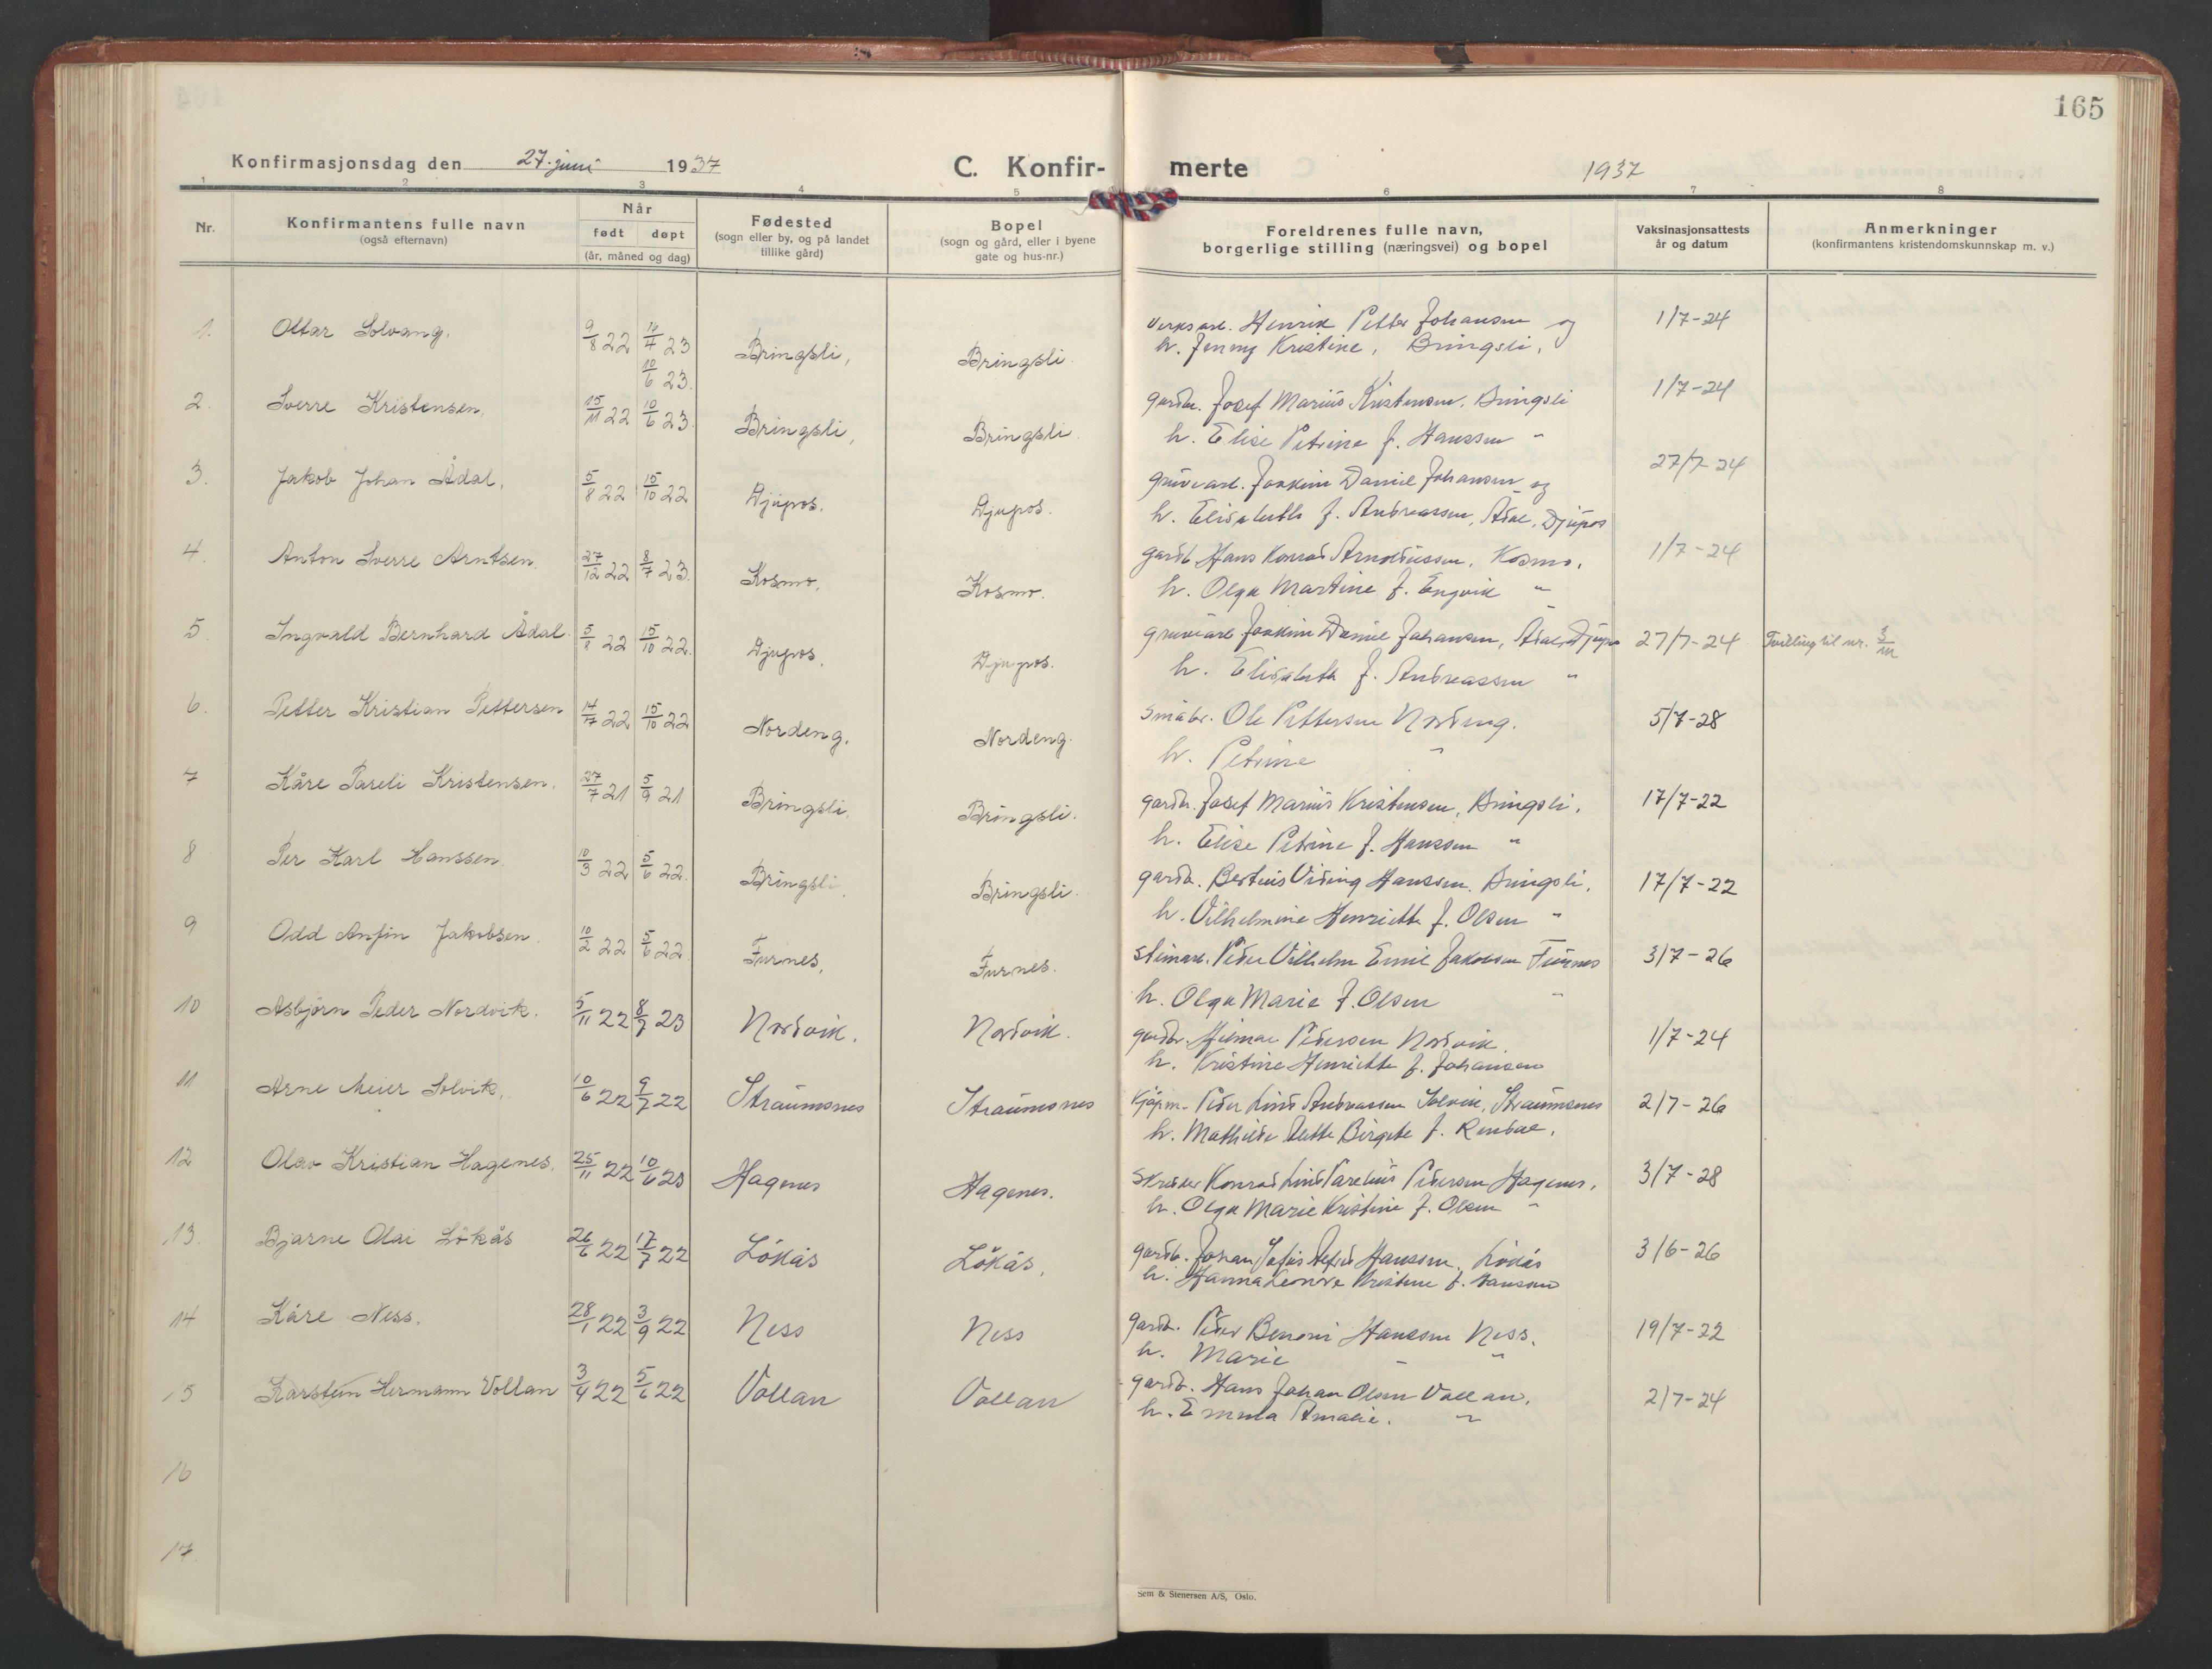 165
Konfirmasjonsdag den 27. juni 1937 C. Konfir- merte 1937
1 2 3 4 5 6 7 8
Nr. Konfirmantens fulle navn (også efternavn) Når født døpt (år, måned og dag) Fødested (sogn eller by, og på landet tillike gård) Bopel (sogn og gård, eller i byene gate og hus-nr.) Foreldrenes fulle navn, borgerlige stilling (næringsvei) og bopel Vaksinasjonsattests år og datum Anmerkninger (konfirmantens kristendomskunnskap m. v.)
1. Ottar Solvang. 9/8 22 14/4 23 Bringsli, Bringsli. Verksarb. Henrik Petter Johansen og 1/7-24
10/6 23. h. Jenny Kristine, Bringsli,
2. Sverre Kristensen, 15/11 22 10/6 23. Bringsli, Bringsli. gardbr. Josef Marius Kristensen, Bringsli 1/7-24
h. Elise Petrine f. Hanssen "
3. Jakob Johan Ådal, 5/8 22 15/10 22 Djupos. Djupos. gruvearb. Joakim Daniel Johansen og 27/7-24
h. Elisabeth f. Andreassen, Ådal, Djupos
4. Anton Sverre Arntsen. 27/12 22 8/7 23. Kosmo, Kosmo. gardb. Hans Konrad Arnoldussen, Kosmo, 1/7-24
h. Olga Martine f. Engvik "
5. Ingvald Bernhard Ådal. 5/8 22 15/10 22. Djupos. Djupos. gruvearb Joakim Daniel Johansen, Ådal, Djupos 27/7-24 Tvilling til nr. 3/m
h. Elisabeth f. Andreassen "
6. Petter Kristian Pettersen 14/7 22 15/10 22 Nordeng, Nordeng. småbr. Ole Pettersen Nordeng. 5/7-28
h. Petrine "
7 Kåre Pareli Kristensen. 27/7 21 5/9 21 Bringsli, Bringsli. gardbr. Josef Marius Kristensen, Bringsli, 17/7-22
h. Elise Petrine f. Hanssen "
8 Per Karl Hanssen. 10/3 22 5/6 22. Bringsli, Bringsli. gardb. Bertius Viding Hanssen, Bringsli, 17/7-22
h. Vilhelmine Henriette f. Olsen "
9 Odd Anfin Jakobsen. 10/2 22 5/6 22. Furnes, Furnes. Peder Vilhelm Emil Jakobsen Furnes 3/7-26
h. Olga Marie f. Olsen "
10 Asbjörn Peder Nordvik. 5/11 22 8/7 23 Nordvik. Nordvik. gardbr. Hilmar Pedersen Nordvik. 1/7-24
h. Kristine Henriette f. Johansen
11 Arne Meier Solvik. 10/6 22 9/7 22 Straumsnes Straumsnes Kjøpm. Peder Lind Andreassen Solvik, Straumsnes 2/7-26
h. Mathilde Birgitte f.
12 Olav Kristian Hagenes. 25/11 22 10/6 23 Hagenes Hagenes. skredder Konrad Lind Parelius Pedersen Hagenes, 3/7-28
h. Olga Marie Kristine f. Olsen "
13. Bjarne Olai Lökås 26/6 22 17/7 22 Lökås Lökås, gardb. Johan Hanssen, Lökås 3/6-26
h. Hanna Leonore Kristine f. Hanssen
14 Kåre Ness. 28/1 22 3/9 22 Ness Ness gardb. Peder Benoni Hanssen Ness. 19/7-22
h. Marie " "
15 Karsten Hermann Vollan 3/4 22 5/6 22 Vollan Vollan gardb. Hans Johan Olsen Vollan. 2/7-24
h. Emma Amalie. "
16
17.
Sem & Stenersen A/S, Oslo.